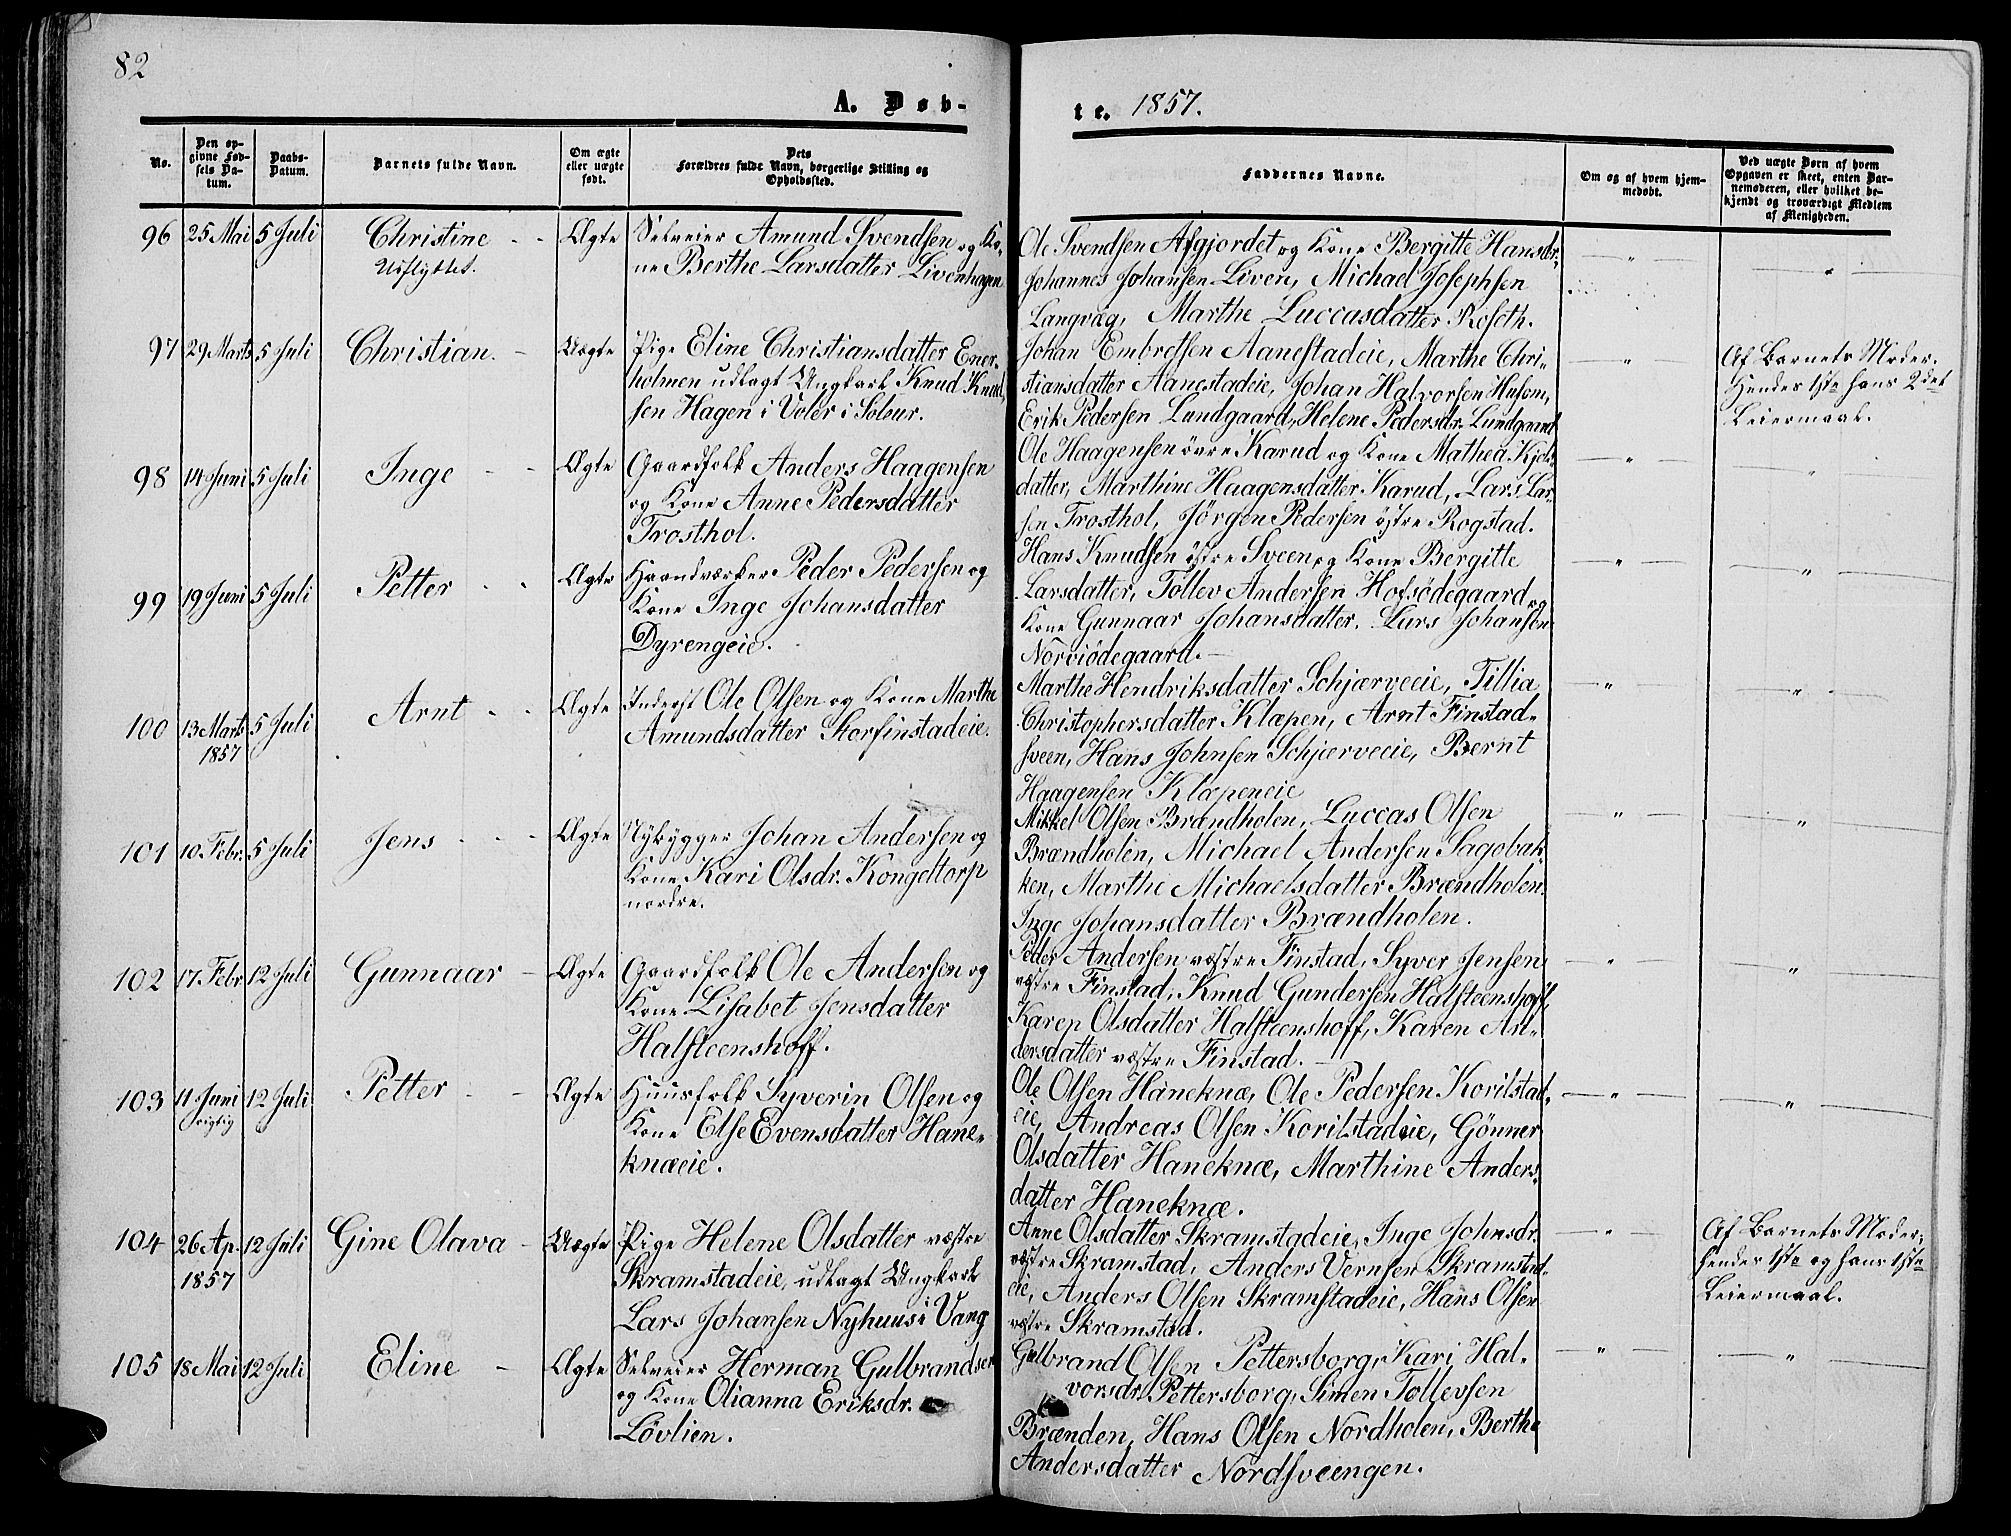 82
A. Døb-
te. 1857.
No.
Den op-
givne Fød-
sels Da-
tum.
Daabs-
Datum.
Barnets fulde Navn.
Om ægte
eller uægte
født.
Dets
Forældres fulde Navn, borgerlige Stilling og
Opholdssted.
Faddernes Navne.
Om og af hvem hjem-
medøbt.
Ved uægte Børn af hvem
Opgaven er skeet, enten Bar-
nemoderen, eller hvilket be-
kjendt og troværdigt Medlem
af Menigheden.
96 25 Mai 5 Juli Christine - - Ægte Selveier Amund Svendsen og Ko-
Udflyttet. ne Berthe Larsdatter Livenhagen
Ole Svendsen Afgjordet og Kone Bergitte Hansdr.
Johannes Johansen Liven, Michael Josephsen
Langvag, Marthe Luccasdatter Roseth.
97 29 Marts 5 Juli Christian. - Uægte Pige Eline Christiansdatter Ener-
holmen udlagt Ungkarl Knud Knud-
sen Hagen i Voler i Soløer.
Johan Embretsen Aanestadeie, Marthe Chri-
stiansdatter Aanestadeie, Johan Halvorsen Husom,
Erik Pedersen Lundgaard, Helene Pedersdr. Lundgaard
Af Barnets Moder.
Hendes 1ste hans 2det
Leiermaal.
98 14 Juni 5 Juli Inge - - Ægte Gaardfolk Anders Haagensen
og Kone Anne Pedersdatter
Trosthol.
Ole Haagensen övre Karud og Kone Mathea Kjels-
datter, Marthine Haagensdatter Karud, Lars Lar-
sen Trosthol, Jörgen Pedersen östre Rogstad.
99 19 Juni 5 Juli Petter - - Ægte Haandværker Peder Pedersen og
Kone Inge Johansdatter
Dyrengeie.
Hans Knudsen östre Sveen og Kone Bergitte
Larsdatter, Tollev Andersen Hofsödegaard og
Kone Gunnaar Johansdatter. Lars Johansen
Norviödegaard.
100 13 Marts 5 Juli Arnt - - Ægte Inderst Ole Olsen og Kone Marthe
1857 Amundsdatter Storfinstadeie.
Marthe Hendriksdatter Schjærveeie, Tillia
Christophersdatter Klæpen, Arnt Finstad-
sveen, Hans Johnsen Schjærveeie, Bernt
Haagensen Klæpeneie
101 10 Febr. 5 Juli Jens - - Ægte Nybygger Johan Andersen og
Kone Kari Olsdr. Kongeltorp
nordre.
Mikkel Olsen Brændholen, Luccas Olsen
Brændholen, Michael Andersen Sagobak-
ken, Marthe Michaelsdatter Brændholen.
Inge Johansdatter Brændholen.
102 17 Febr 12 Juli Gunnaar - Ægte Gaardfolk Ole Andersen og
Kone Lisabet Jensdatter
Halfsteenshoff.
Peder Andersen væstre Finstad, Syver Jensen
væstre Finstad, Knud Gundersen Halfsteenshoff,
Karen Olsdatter Halfsteenshoff, Karen An-
dersdatter væstre Finstad.
103 11 Juni 12 Juli Petter - - Ægte Huusfolk Syverin Olsen og
rigtig Kone Else Evensdatter Hane-
knæeie.
Ole Olsen Haneknæ, Ole Pedersen Korilstad-
eie, Andreas Olsen Korilstadeie, Gönner
Olsdatter Haneknæ, Marthine Anders-
datter Haneknæ.
104 26 Ap. 12 Juli Gine Olava - Uægte Pige Helene Olsdatter væstre
1857 Skramstadeie, udlagt Ungkarl
Lars Johansen Nyhuus i Vang
Anne Olsdatter Skramstadeie, Inge Johnsdr.
væstre Skramstad, Anders Vernsen Skramstad-
eie, Anders Olsen Skramstadeie, Hans Olsen
væstre Skramstad.
Af Barnets Moder;
hendes 1ste og hans 1ste
Leiermaal.
105 18 Mai 12 Juli Eline - Ægte Selveier Herman Gulbrandsen
og Kone Olianna Eriksdr.
Løvlien.
Gulbrand Olsen Pettersborg, Kari Hal-
vorsdr. Pettersborg, Simen Tollevsen
Brænden, Hans Olsen Nordholen, Berthe
Andersdatter Nordsveengen.